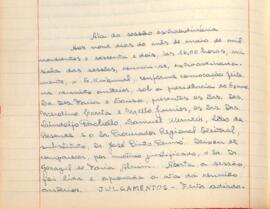 Ata da sessão extraordinária
Aos nove dias do mês de maio de mil
novecentos e sessenta e dois, às 16,00 horas, na
sala das sessões, reuniu-se, extraordinaria-
mente, o Tribunal, conforme convocação feita
na reunião anterior, sob a presidência do Exmo.
Sr. Des. Faria e Sousa, presentes os Srs. Drs.
e os Srs. Drs.
Samuel
e o Dr. Procurador Regional Eleitoral,
substituto, Dr. José Pinto Renó. Deixou de
comparecer, por motivo justificado, o Sr. Des.
Gonzaga de Faria Alvim. Aberta a sessão,
foi lida e aprovada a ata da reunião
anterior. JULGAMENTOS - Feito adiado.